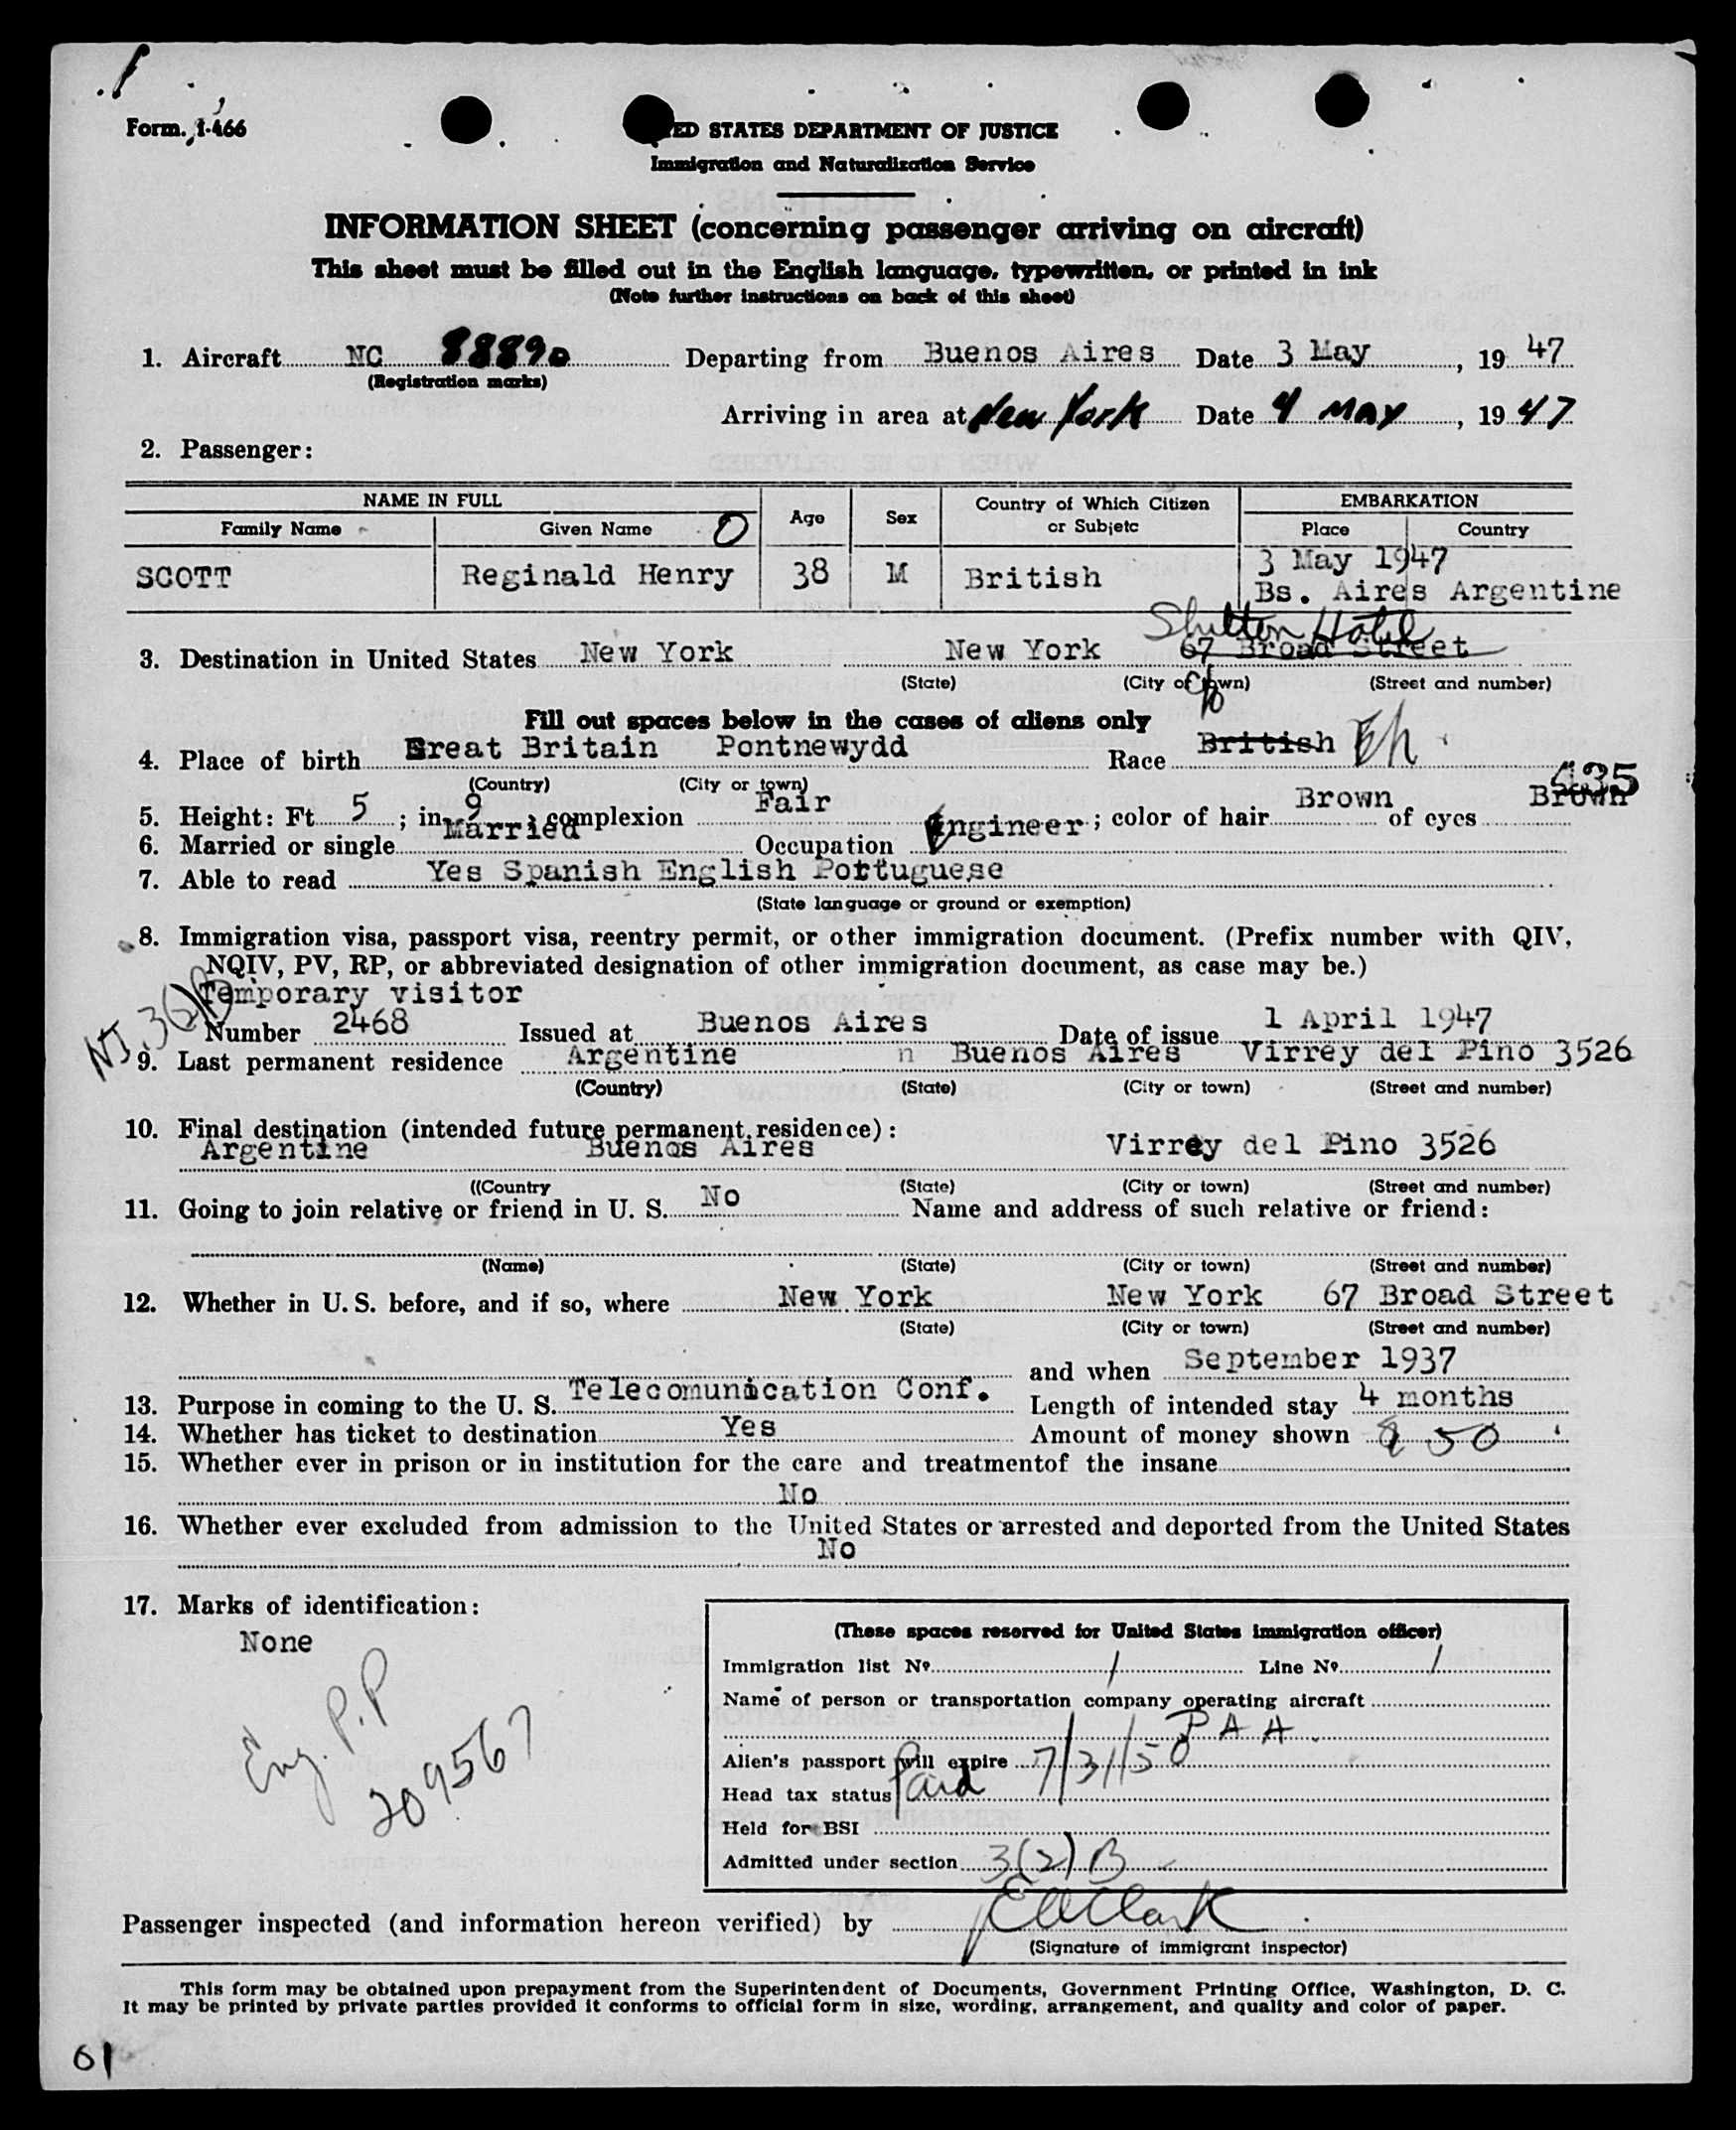 Form. I-466
ED STATES DEPARTMENT OF JUSTICE
Immigration and Naturalization Service
INFORMATION SHEET (concerning passenger arriving on aircraft)
This sheet must be filled out in the English language, typewritten, or printed in ink
(Note further instructions on back of this sheet)
1. Aircraft NC 88890 Departing from Buenos Aires Date 3 May, 19 47
(Registration marks)
Arriving in area at New York Date 4 MAY, 19 47
2. Passenger:
NAME IN FULL Age Sex Country of Which Citizen or Subjetc EMBARKATION
Family Name Given Name O Place Country
SCOTT Reginald Henry 38 M British 3 May 1947
Bs. Aires Argentine
Shelton Hotel
3. Destination in United States New York New York 67 Broad Street
(State) (City or town) (Street and number)
c/o
Fill out spaces below in the cases of aliens only
4. Place of birth Great Britain Pontnewydd Race British
(Country) (City or town)
435
5. Height: Ft 5; in 9; complexion Fair; color of hair Brown of eyes Brown
6. Married or single Married Occupation Engineer
7. Able to read Yes Spanish English Portuguese
(State language or ground or exemption)
8. Immigration visa, passport visa, reentry permit, or other immigration document. (Prefix number with QIV,
NQIV, PV, RP, or abbreviated designation of other immigration document, as case may be.)
Temporary visitor
Number 2468 Issued at Buenos Aires Date of issue 1 April 1947
9. Last permanent residence Argentine n Buenos Aires Virrey del Pino 3526
(Country) (State) (City or town) (Street and number)
10. Final destination (intended future permanent residence):
Argentine Buenos Aires Virrey del Pino 3526
((Country (State) (City or town) (Street and number)
11. Going to join relative or friend in U. S. No Name and address of such relative or friend:
(Name) (State) (City or town) (Street and number)
12. Whether in U. S. before, and if so, where New York New York 67 Broad Street
(State) (City or town) (Street and number)
and when September 1937
13. Purpose in coming to the U. S. Telecomunication Conf. Length of intended stay 4 months
14. Whether has ticket to destination Yes Amount of money shown 50
15. Whether ever in prison or in institution for the care and treatmentof the insane
No
16. Whether ever excluded from admission to the United States or arrested and deported from the United States
No
17. Marks of identification:
None
Eng. P.P
209567
(These spaces reserved for United States immigration officer)
Immigration list Nº 1 Line Nº 1
Name of person or transportation company operating aircraft
P A A
Alien's passport will expire 7/31/50
Head tax status Paid
Held for BSI
Admitted under section 3(2) B
Passenger inspected (and information hereon verified) by E A Clark
(Signature of immigrant inspector)
This form may be obtained upon prepayment from the Superintendent of Documents, Government Printing Office, Washington, D. C.
It may be printed by private parties provided it conforms to official form in size, wording, arrangement, and quality and color of paper.
61